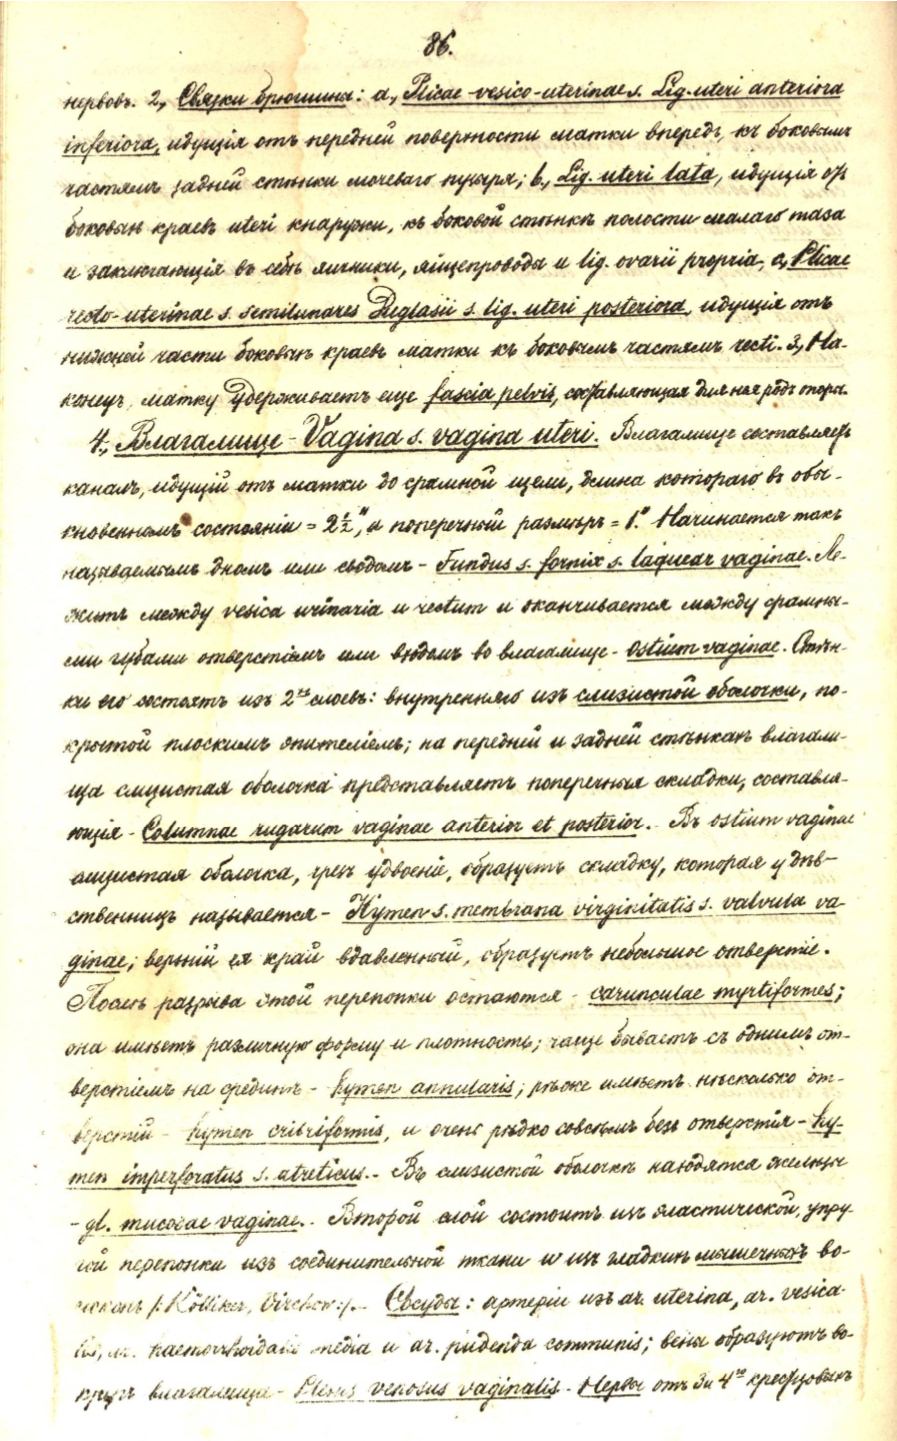 86.
нервовъ. 2, Связки брюшины: a, Plicae vesico-uterinae s. Lig. uteri anteriora
inferiora, идущія отъ передней поверхности матки впередъ, къ боковымъ
частямъ задней стѣнки мочеваго пузыря; b., Lig. uteri lata, идущія отъ
боковыхъ краевъ uteri кнаружи, къ боковой стѣнкѣ полости малаго таза
и заключающія въ себѣ яичники, яйцепровода и lig. ovarii propria, c, Plicae
recto-uterinae s. semilunares Duglasii s. lig. uteri posteriora, идущія отъ
нижней части боковыхъ краевъ матки къ боковымъ частямъ recti. 3, На-
конецъ, матку удерживаетъ еще fascia pelvis, составляющая для нея родъ опоры.
4., Влагалище - Vagina s. vagina uteri. Влагалище составляетъ
каналъ, идущій отъ матки до срамной щели, длина котораго въ обы-
кновенномъ состояніи = 2½", а поперечный размѣръ = 1". Начинается такъ
называемымъ дномъ или сводомъ - Fundus s. fornix s. laquear vaginae. Ле-
житъ между vesica urinaria и rectum и оканчивается между срамны-
ми губами отверстіемъ или входомъ во влагалище - Ostium vaginae. Стѣн-
ки его состоятъ изъ 2хъ слоевъ: внутренняго изъ слизистой оболочки, по-
крытой плоскимъ эпителіемъ; на передней и задней стѣнкахъ влагали-
ща слизистая оболочка представляетъ поперечныя складки, составля-
ющія - Columnae rugarum vaginae anterior et posterior. Въ ostium vaginae
слизистая оболочка, чрезъ удвоеніе, образуетъ складку, которая у дѣв-
ственницъ называется - Hymen s. membrana virginitatis s. valvula va-
ginae; верхній ея край вдавленный, образуетъ небольшое отверстіе.
Послѣ разрыва этой перепонки остаются - carunculae myrtiformes;
она имѣетъ различную форму и плотность; чаще бываетъ съ однимъ от-
верстіемъ на срединѣ - hymen annularis; рѣже имѣетъ нѣсколько от-
верстій - hymen cribriformis, и очень рѣдко совсѣмъ безъ отверстія - hy-
men imperforatus s. atreticus.- Въ слизистой оболочкѣ находятся железы
- gl. mucosae vaginae.. Второй слой состоитъ изъ эластической, упру-
гой перепонки изъ соединительной ткани и изъ гладкихъ мышечныхъ во-
локонъ /: Kölliker, Virchow :/.- Сосуды: артеріи изъ ar. uterina, ar. vesica-
lis, ar. haemorrhoidalis media и ar. pudenda communis; вены образуютъ во-
кругъ влагалища - Plexus venosus vaginalis - Нервы отъ 3 и 4го крестцовыхъ